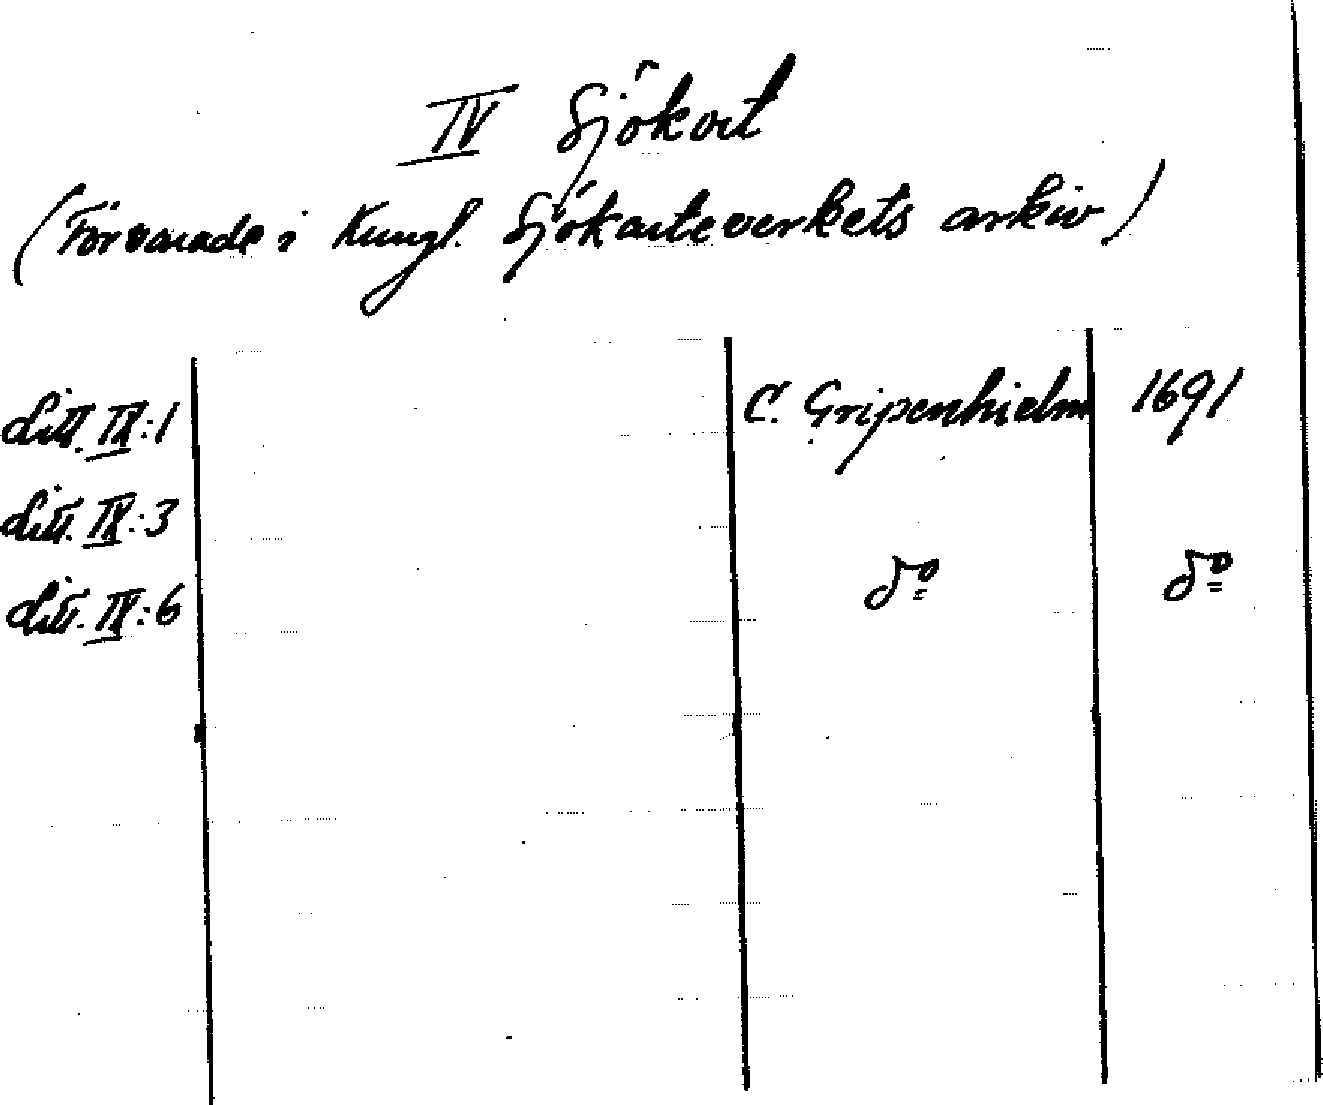 IV Sjökort
(Förvarade i Kungl. Sjökarteverkets arkiv)
Litt. IX:1 C. Gripenhielm 1691
Litt. IX:3
Litt. IV:6 do do